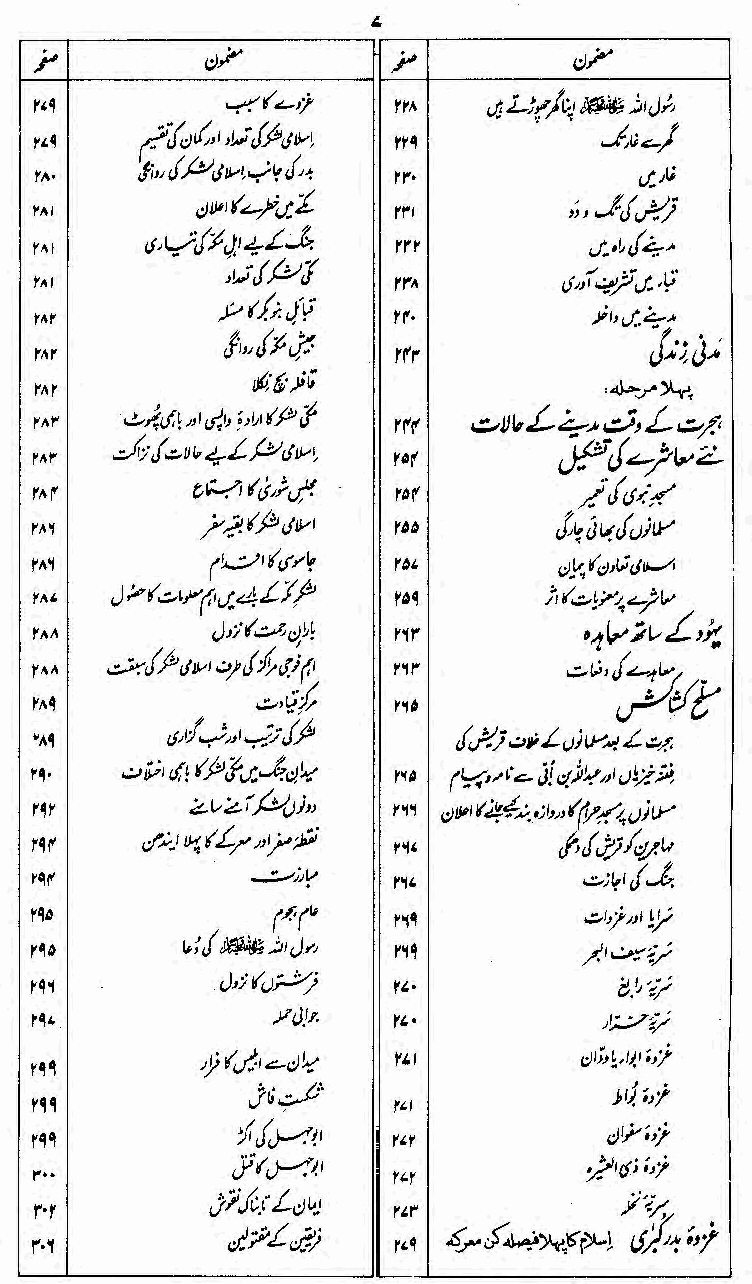 ۷
مضمون صفحہ
رسُول اللہ ﷺ اپنا گھر چھوڑتے ہیں ۲۲۸
گھر سے غار تک ۲۲۹
غار میں ۲۳۰
قریش کی تگ و دَو ۲۳۱
مدینے کی راہ میں ۲۳۲
قباء میں تشریف آوری ۲۳۸
مدینے میں داخلہ ۲۴۰
مَدنی زِندگی ۲۴۳
پہلا مرحلہ:
ہجرت کے وقت مدینے کے حالات ۲۴۴
نئے معاشرے کی تشکیل ۲۵۴
مسجدِ نبوی کی تعمیر ۲۵۴
مسلمانوں کی بھائی چارگی ۲۵۵
اسلامی تعاون کا پیمان ۲۵۷
معاشرے پر معنویات کا اثر ۲۵۹
یہُود کے ساتھ معاہدہ ۲۶۳
معاہدے کی دفعات ۲۶۳
مسلّح کشاکش ۲۶۵
ہجرت کے بعد مسلمانوں کے خلاف قریش کی
فتنہ خیزیاں اور عبداللہ بن اُبَی سے نامہ و پیام ۲۶۵
مسلمانوں پر مسجدِ حرام کا دروازہ بند کیے جانے کا اعلان ۲۶۶
مہاجرین کو قریش کی دھمکی ۲۶۷
جنگ کی اجازت ۲۶۷
سَرایا اور غزوات ۲۶۹
سَرِیّۂ سیف البحر ۲۶۹
سَرِیّۂ رابغ ۲۷۰
سَرِیّۂ خرّار ۲۷۰
غزوۂ ابواء یا ودّان ۲۷۱
غزوۂ بُواط ۲۷۱
غزوۂ سفوان ۲۷۲
غزوۂ ذی العشیرہ ۲۷۲
سریّۂ نخلہ ۲۷۳
غزوۂ بدر کُبریٰ اِسلام کا پہلا فیصلہ کن معرکہ ۲۷۹
مضمون صفحہ
غزوے کا سبب ۲۷۹
اِسلامی لشکر کی تعداد اور کمان کی تقسیم ۲۷۹
بدر کی جانب اسلامی لشکر کی روانگی ۲۸۰
مکّے میں خطرے کا اعلان ۲۸۱
جنگ کے لیے اہلِ مکّہ کی تیاری ۲۸۱
مکّی لشکر کی تعداد ۲۸۱
قبائلِ بنو بکر کا مسئلہ ۲۸۲
جیشِ مکّہ کی روانگی ۲۸۲
قافلہ بچ نِکلا ۲۸۲
مکّی لشکر کا ارادۂ واپسی اور باہمی پھُوٹ ۲۸۳
اِسلامی لشکر کے لیے حالات کی نزاکت ۲۸۳
مجلسِ شوریٰ کا اجتماع ۲۸۴
اسلامی لشکر کا بقیہ سفر ۲۸۶
جاسوسی کا اقدام ۲۸۶
لشکرِ مکّہ کے بارے میں اہم معلومات کا حصُول ۲۸۷
بارانِ رحمت کا نزول ۲۸۸
اہم فوجی مراکز کی طرف اسلامی لشکر کی سبقت ۲۸۸
مرکزِ قیادت ۲۸۹
لشکر کی ترتیب اور شب گزاری ۲۸۹
میدانِ جنگ میں مکّی لشکر کا باہمی اختلاف ۲۹۰
دونوں لشکر آمنے سامنے ۲۹۲
نقطۂ صفر اور معرکے کا پہلا ایندھن ۲۹۴
مبارزت ۲۹۴
عام ہجوم ۲۹۵
رسول اللہ ﷺ کی دُعا ۲۹۵
فرشتوں کا نزول ۲۹۶
جوابی حملہ ۲۹۷
میدان سے ابلیس کا فرار ۲۹۹
شکستِ فاش ۲۹۹
ابوجہل کی اکڑ ۲۹۹
ابوجہل کا قتل ۳۰۰
ایمان کے تابناک نقوش ۳۰۲
فریقین کے مقتولین ۳۰۶